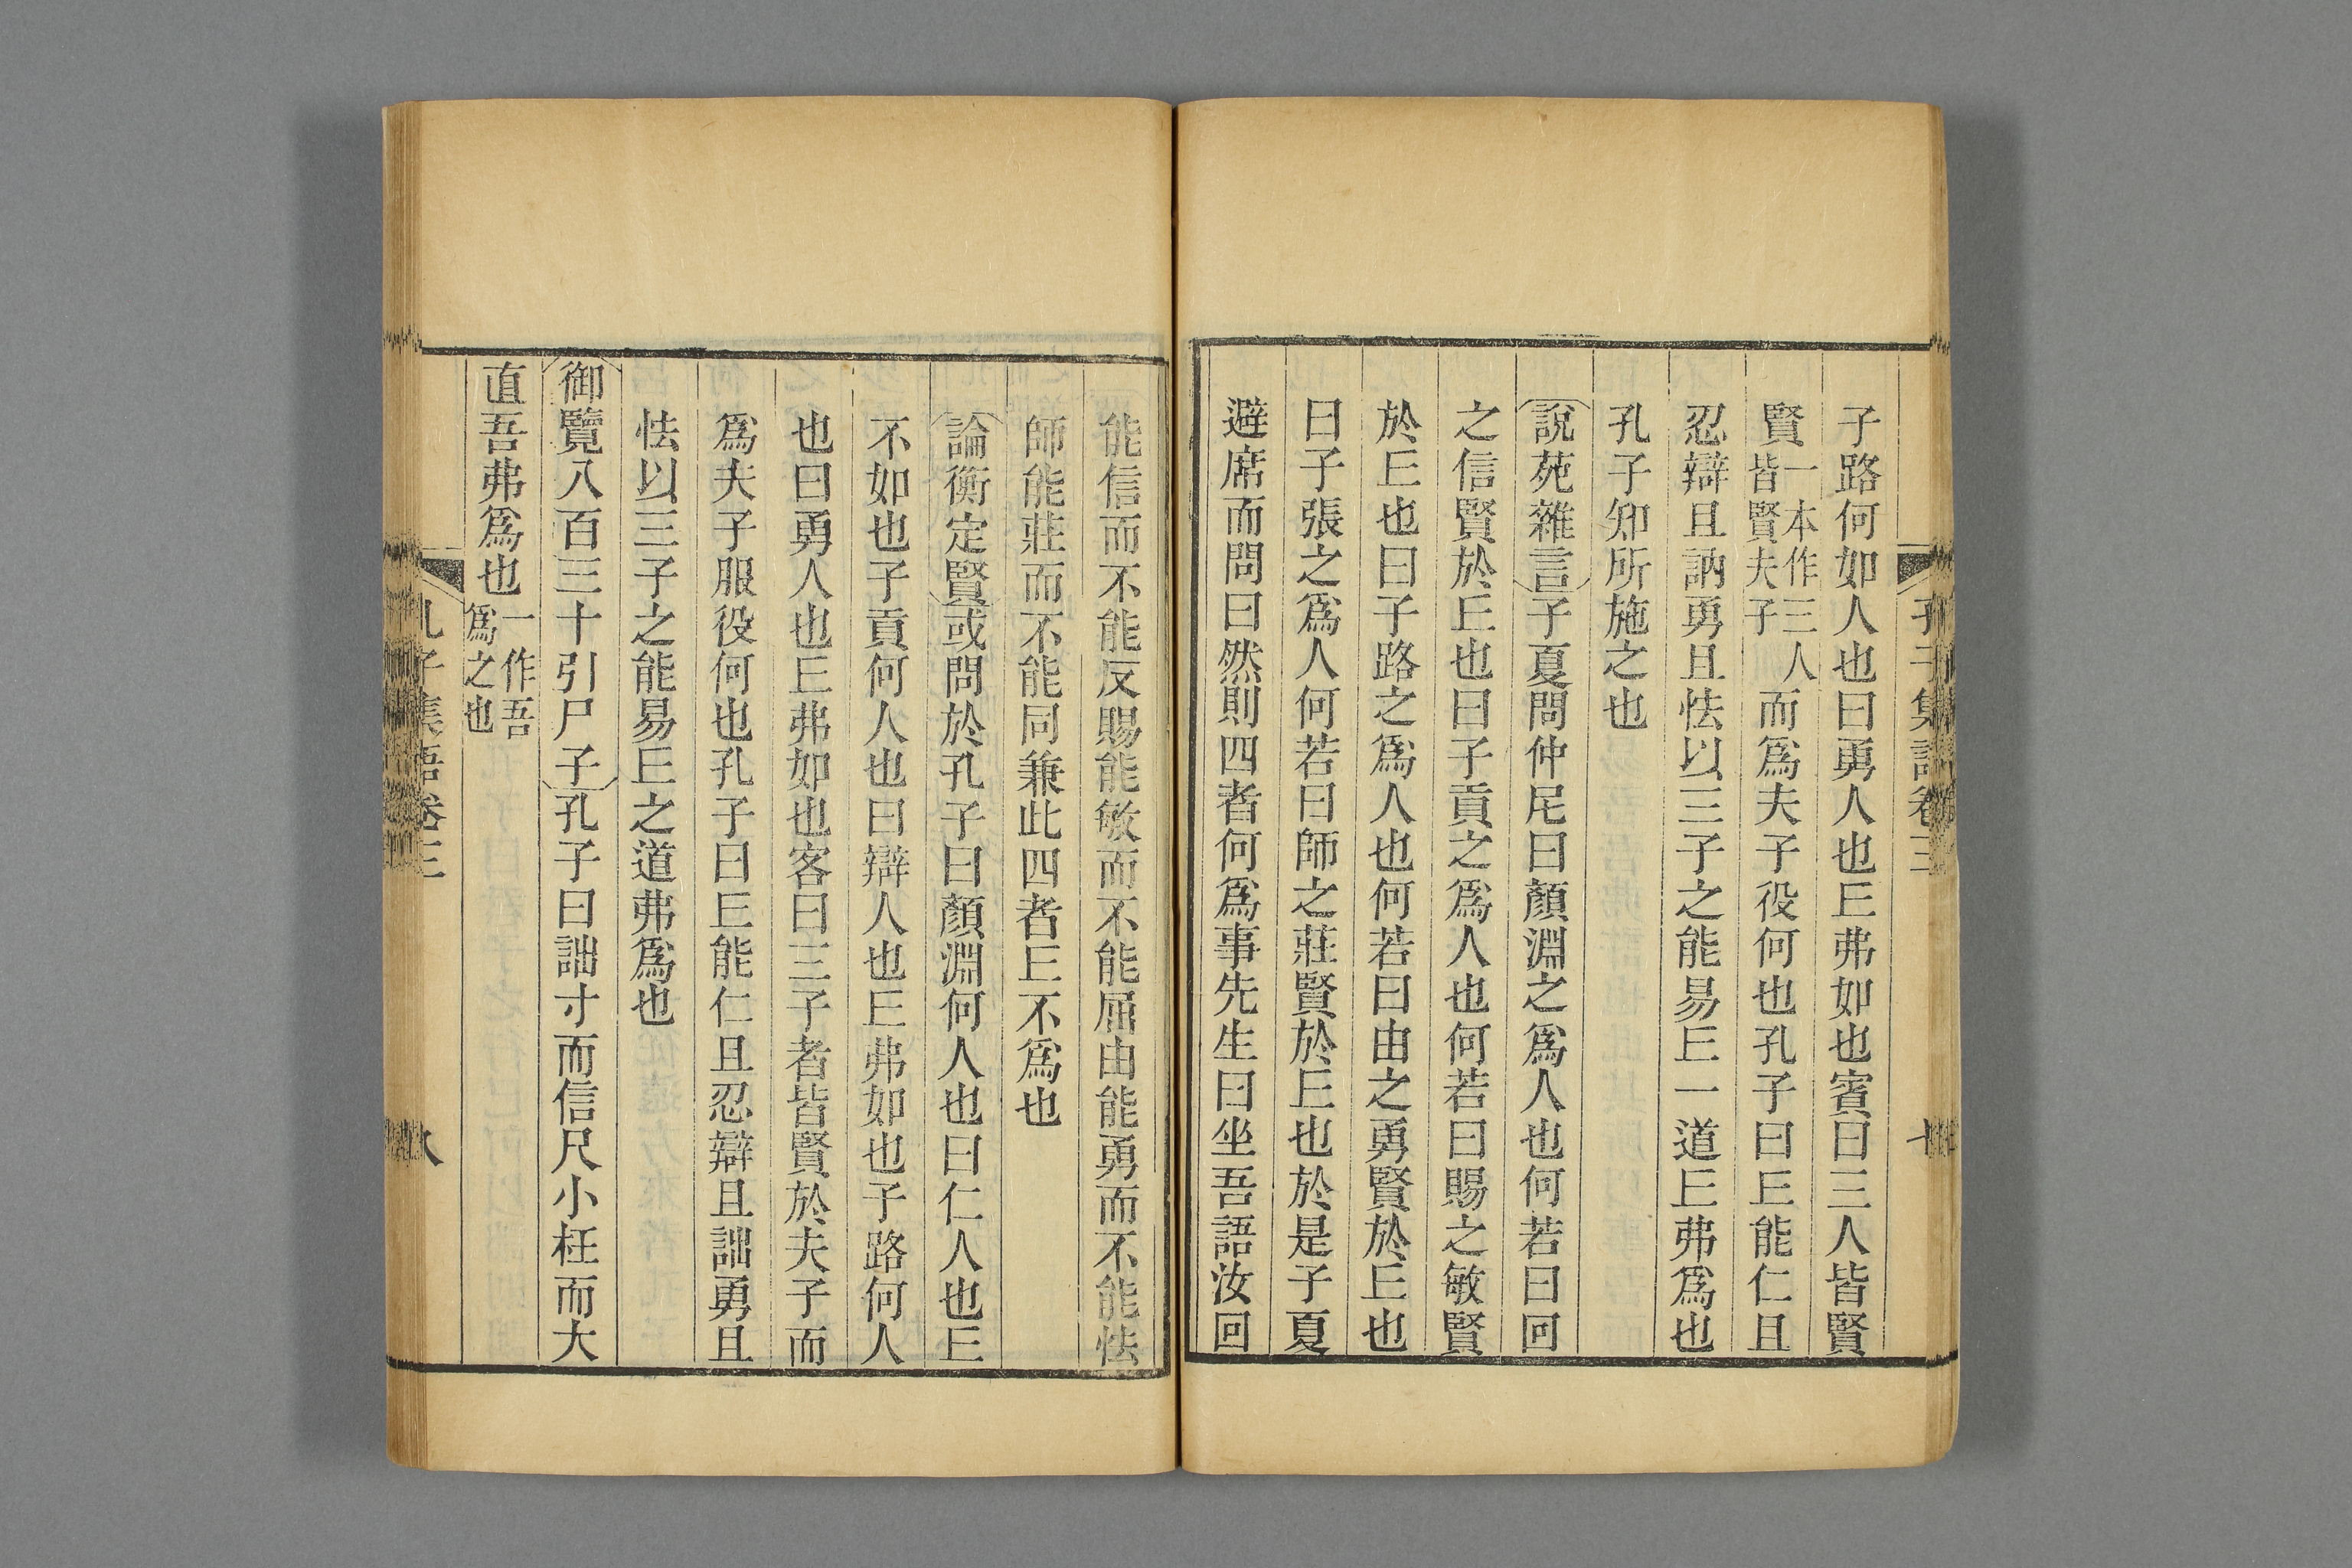 孔子集語卷三 七
子路何如人也曰勇人也丘弗如也賓曰三人皆賢
賢一本作三人皆賢夫子而爲夫子役何也孔子曰丘能仁且
忍辯且訥勇且怯以三子之能易丘一道丘弗爲也
孔子知所施之也
說苑雜言子夏問仲尼曰顏淵之爲人也何若曰回
之信賢於丘也曰子貢之爲人也何若曰賜之敏賢
於丘也曰子路之爲人也何若曰由之勇賢於丘也
曰子張之爲人何若曰師之莊賢於丘也於是子夏
避席而問曰然則四者何爲事先生曰坐吾語汝回
能信而不能反賜能敏而不能屈由能勇而不能怯
師能莊而不能同兼此四者丘不爲也
論衡定賢或問於孔子曰顏淵何人也曰仁人也丘
不如也子貢何人也曰辯人也丘弗如也子路何人
也曰勇人也丘弗如也客曰三子者皆賢於夫子而
爲夫子服役何也孔子曰丘能仁且忍辯且詘勇且
怯以三子之能易丘之道弗爲也
御覽八百三十引尸子孔子曰詘寸而信尺小枉而大
直吾弗爲也一作吾爲之也
孔子集語卷三 八